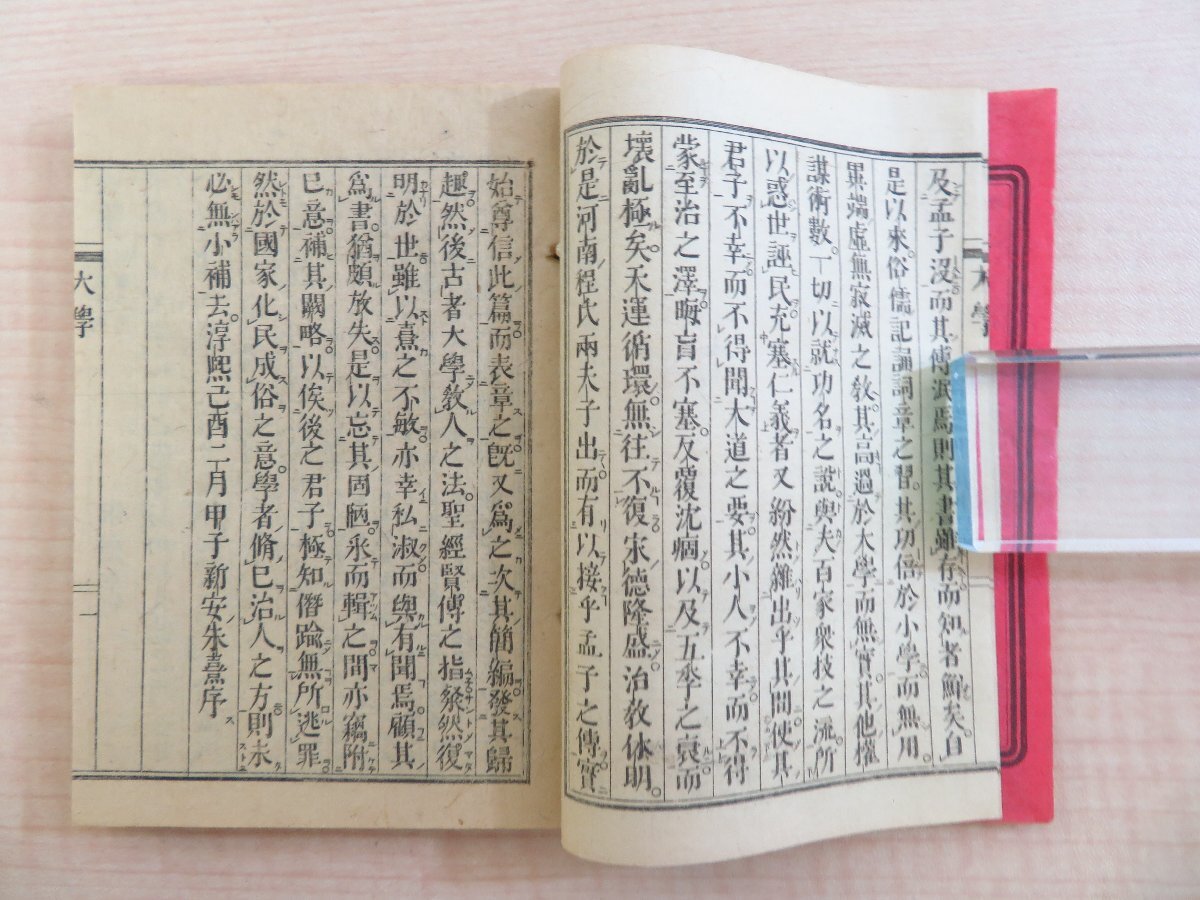 及孟子沒而其傳泯焉則其書雖存而知者鮮矣自
是以來俗儒記誦詞章之習其功倍於小學而無用
異端虛無寂滅之敎其高過於大學而無實其他權
謀術數一切以就功名之說與夫百家衆技之流所
以惑世誣民充塞仁義者又紛然雜出乎其間使其
君子不幸而不得聞大道之要其小人不幸而不得
蒙至治之澤晦盲不塞反覆沈痼以及五季之衰而
壞亂極矣天運循環無往不復宋德隆盛治敎休明
於是河南程氏兩夫子出而有以接乎孟子之傳實
大學
始尊信此篇而表章之旣又爲之次其簡編發其歸
趣然後古者大學敎人之法聖經賢傳之指粲然復
明於世雖以熹之不敏亦幸私淑而與有聞焉顧其
爲書猶頗放失是以忘其固陋釆而輯之間亦竊附
已意補其闕略以俟後之君子極知僭踰無所逃罪
然於國家化民成俗之意學者脩已治人之方則未
必無小補云淳熙己酉二月甲子新安朱熹序
大學